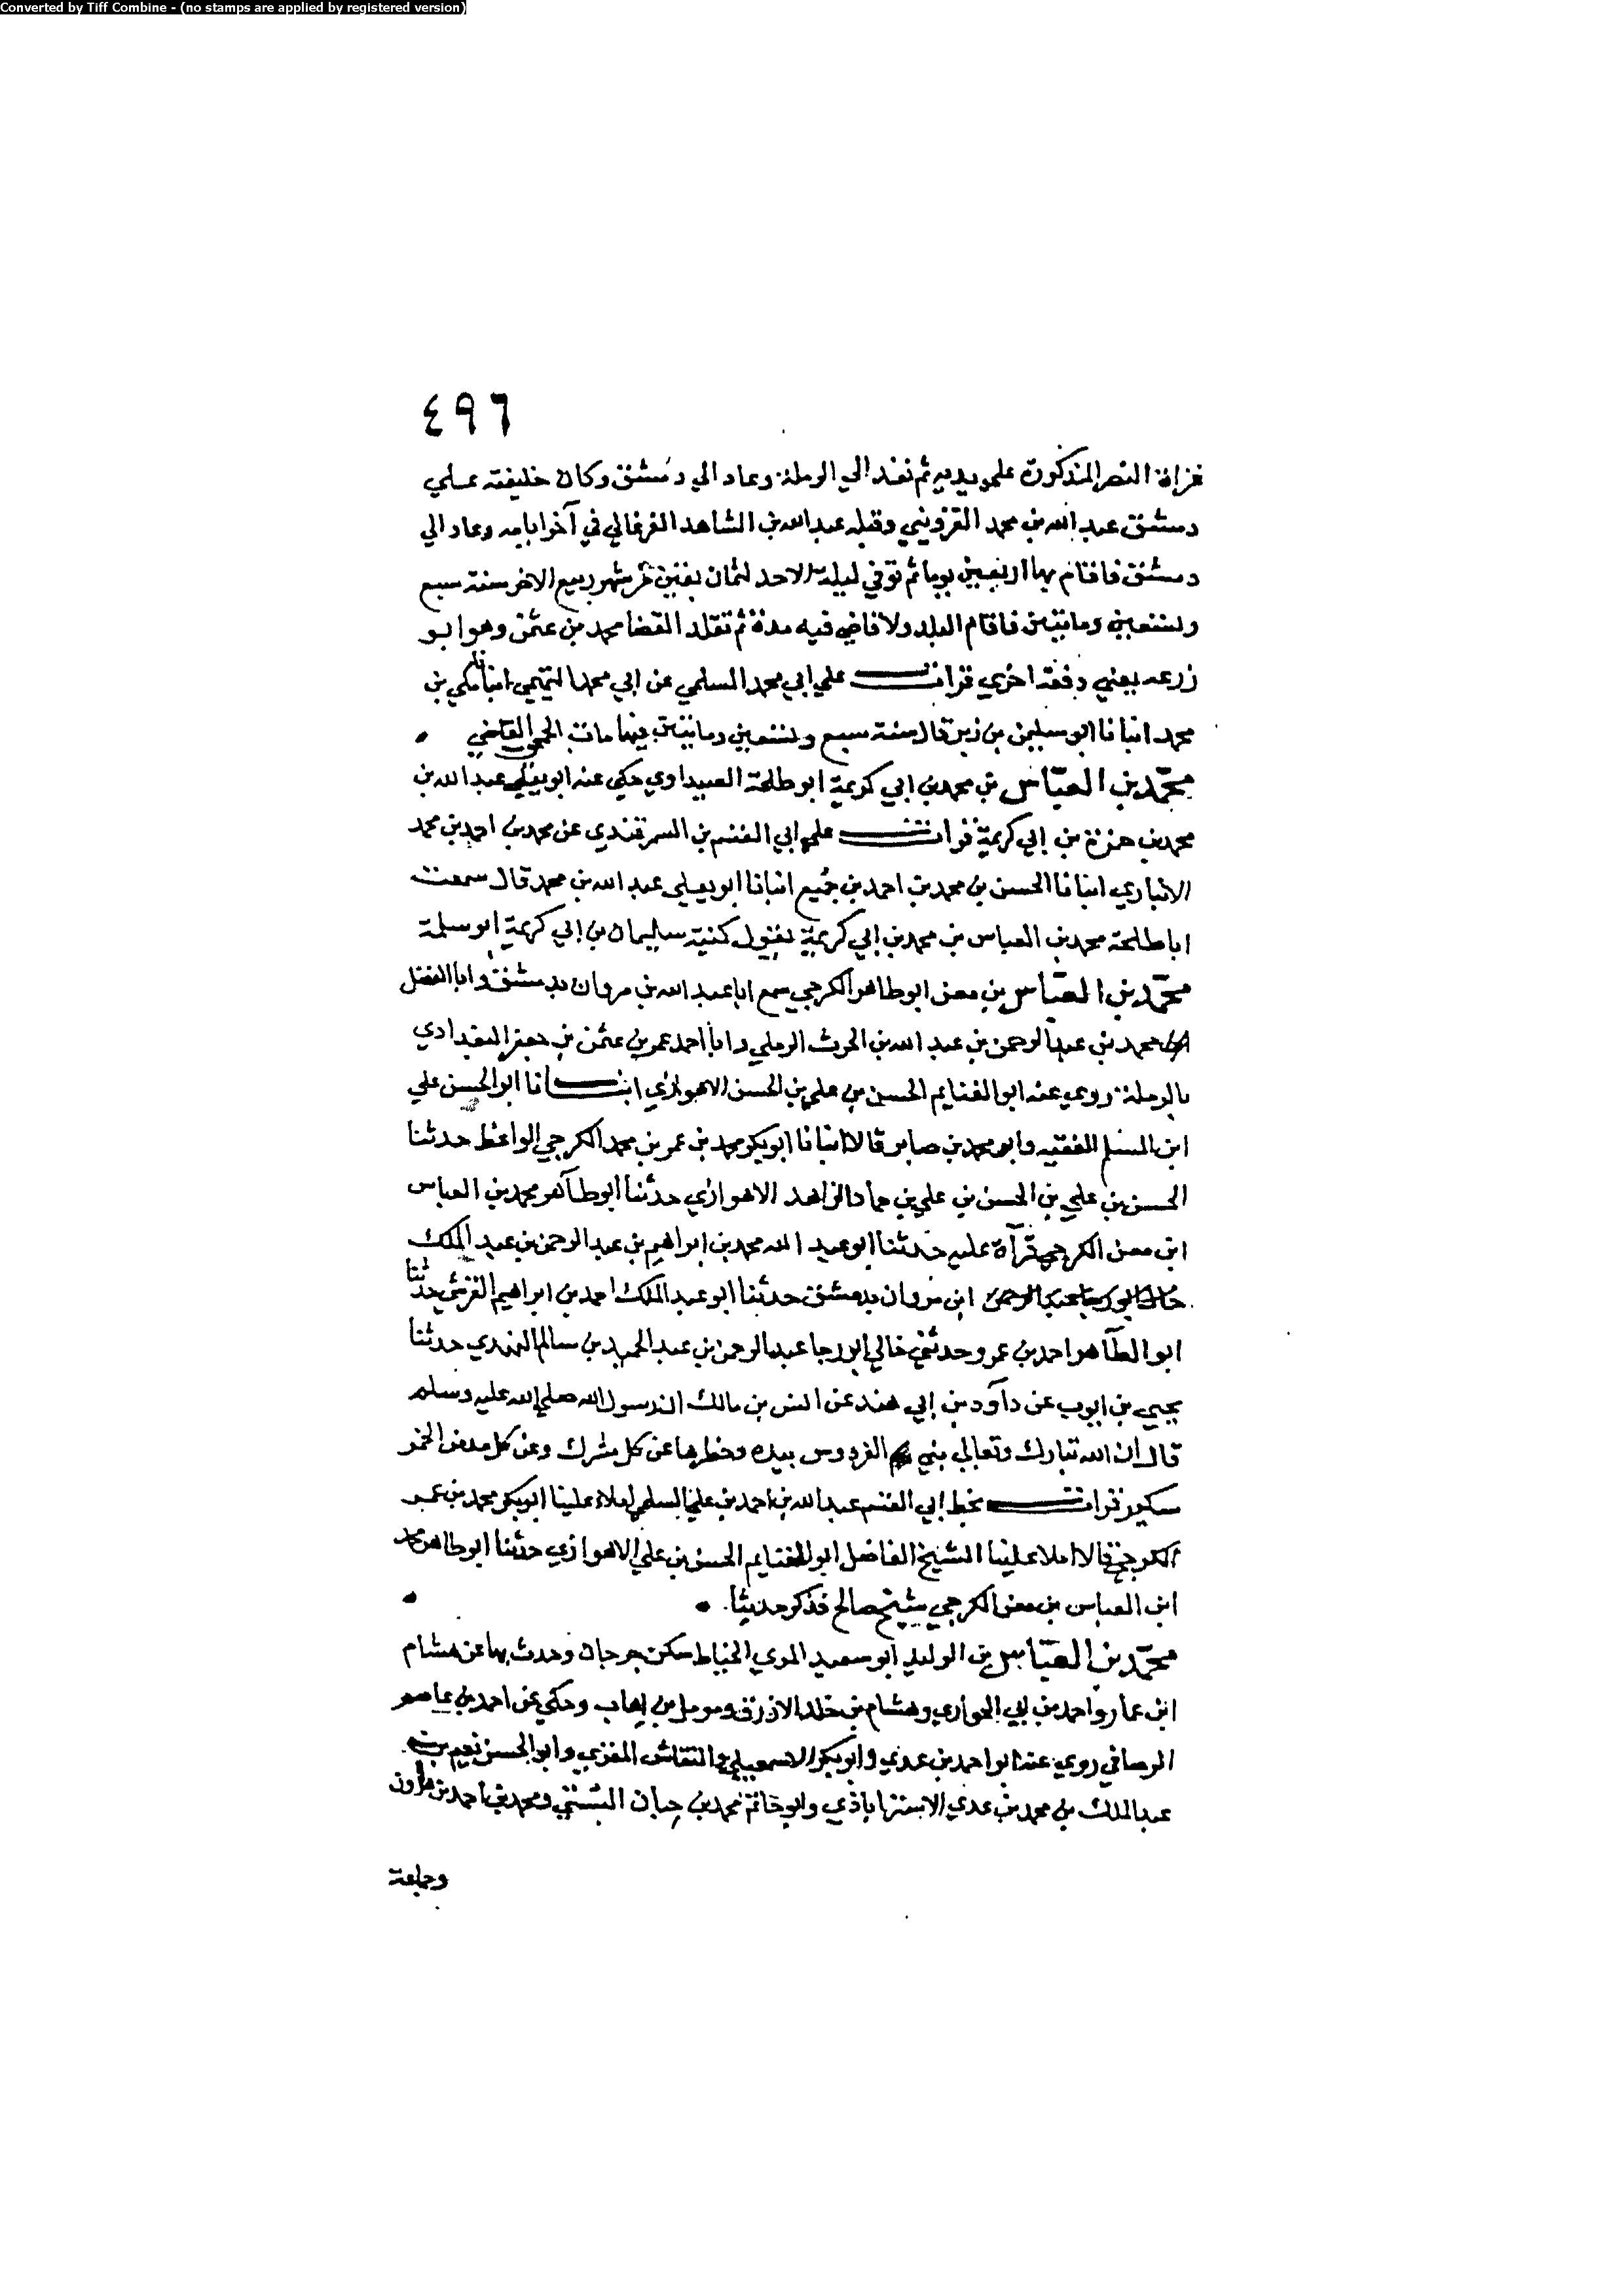 Converted by Tiff Combine - (no stamps are applied by registered version)
٤٩٦
غزاة النصر المذكورة علي يديه ثم نفذ الي الرملة وعاد الي دمشق وكان خليفته علي
دمشق عبد الله بن محمد القزويني وقبله عبد الله بن الشاهد الفرغاني في آخر ايامه وعاد الي
دمشق فاقام بها اربعين يوما ثم توفي ليلة الاحد لثمان بقين من شهر ربيع الاخر سنة سبع
وتسعين ومايتين فاقام البلد ولا قاضي فيه مدة ثم تقلد القضا محمد بن عثمن وهو ابو
زرعه يعني دفعة اخري قرات علي ابي محمد السلمي عن ابي محمد التميمي انبانا مكي بن
محمد انبانا ابو سليمن بن زبر قال سنة سبع وتسعين ومايتين فيها مات الجمحي القاضي
محمد بن العباس بن محمد بن ابي كريمة ابو طلحة الصيداوي حكي عنه ابو يعلي عبد الله بن
محمد بن حمزة بن ابي كريمة قرات علي ابي القسم بن السمرقندي عن محمد بن احمد بن محمد
الانباري انبانا الحسن بن محمد بن احمد بن جميع انبانا ابو يعلي عبد الله بن محمد قال سمعت
ابا طلحة محمد بن العباس بن محمد بن ابي كريمة يقول كنية سليمان بن ابي كريمة ابو سلمة
محمد بن العباس بن معن ابو طاهر الكرجي سمع ابا عبد الله بن مروان بدمشق وابا الفضل
محمد بن عبد الرحمن بن عبد الله بن الحرث الرملي وابا احمد عمر بن عثمن بن جعفر البغدادي
بالرملة روي عنه ابو الغنايم الحسن بن علي بن الحسن الاهوازي انبانا ابو الحسن علي
ابن المسلم الفقيه وابو محمد بن صابر قالا انبانا ابو بكر محمد بن عمر بن محمد الكرجي الواعظ حدثنا
الحسن بن علي بن الحسن بن علي بن حماد الزاهد الاهوازي حدثنا ابو طاهر محمد بن العباس
ابن معن الكرجي قرآة عليه حدثنا ابو عبد الله محمد بن ابراهيم بن عبد الرحمن بن عبد الملك
ابن مروان بدمشق حدثنا ابو عبد الملك احمد بن ابراهيم القرشي حدثنا
ابو الطاهر احمد بن عمرو حدثني خالي ابو رجا عبد الرحمن بن عبد الحميد بن سالم المهدي حدثنا
يحيي بن ايوب عن داود بن ابي هند عن انس بن مالك ان رسول الله صلي الله عليه وسلم
قال ان الله تبارك وتعالي بني الفردوس بيده وحظرها عن كل مشرك وعن كل مدمن الخمر
سكير قرات بخط ابي القسم عبد الله بن احمد بن علي السلمي املاء علينا ابو بكر محمد بن عمر
الكرجي قالا املا علينا الشيخ الفاضل ابو الغنايم الحسن بن علي الاهوازي حدثنا ابو طاهر محمد
ابن العباس بن معن الكرجي شيخ صالح فذكر حديثا
محمد بن العباس بن الوليد ابو سعيد المري الخياط سكن جرجان وحدث بها عن هشام
ابن عمار واحمد بن ابي الحواري وهشام بن خلد الازرق ومومل بن اهاب وحكي عن احمد بن عاصم
الرصافي روي عنه ابو احمد بن عدي وابو بكر الاسمعيلي والنقاش المقري وابو الحسن نعيم بن
عبد الملك بن محمد بن عدي الاستراباذي وابو حاتم محمد بن حبان البستي ومحمد بن احمد بن هارون
وجماعة